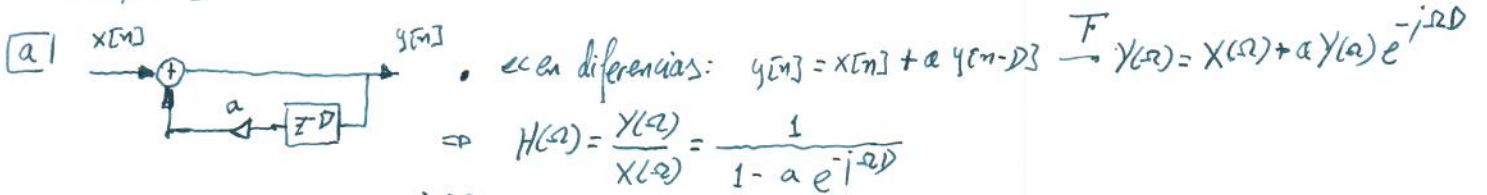 a) x[n] y[n] • ec en diferencias: y[n] = x[n] + a y[n-D] —F→ Y(Ω) = X(Ω) + a Y(Ω) e^{-jΩD}
a z^{-D} ⇒ H(Ω) = Y(Ω)/X(Ω) = 1/(1 - a e^{-jΩD})